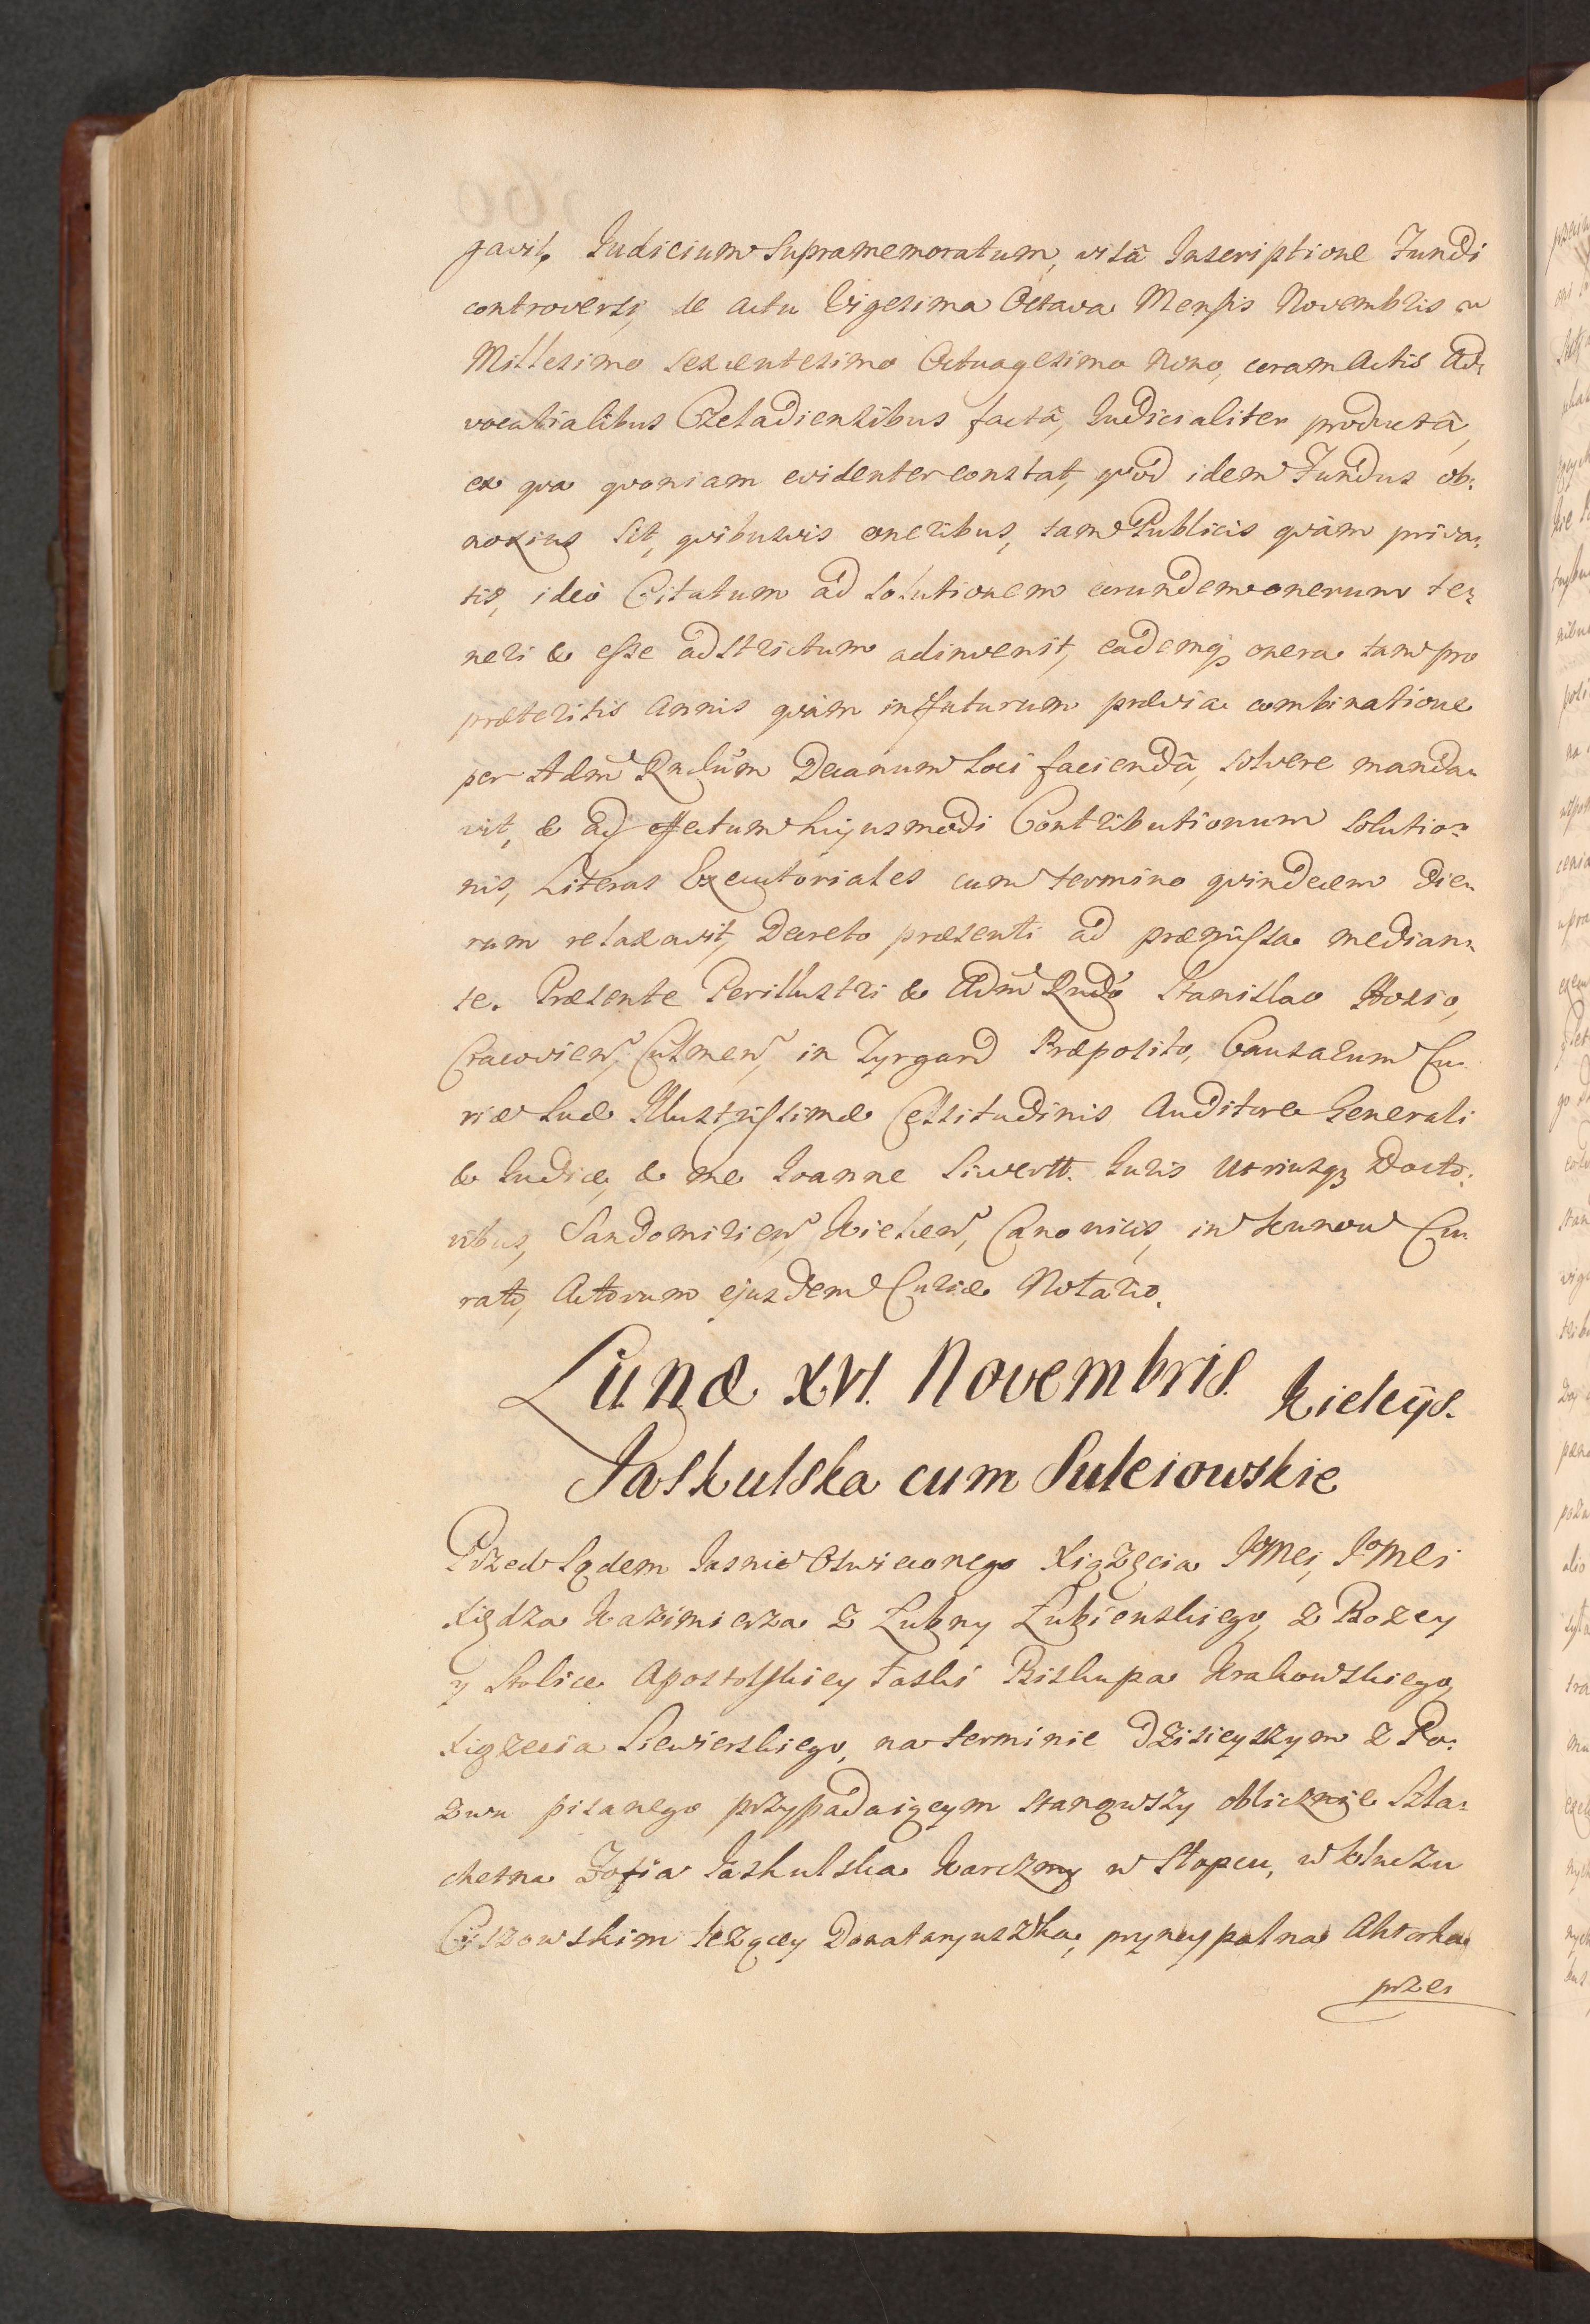 gavit. Iudicium Supramemoratum, visâ Inscriptione Fundi
controversi, de actu Vigesima Octava Mensis Novembris
Millesimo Sexcentesimo Octuagesimo Nono, coram Actis Ad:
vocatialibus Czeladiensibus factâ, Iudicialiter productâ,
ex qva qvoniam evidenter constat, qvod idem Fundus ob:
noxius sit, qvibusvis oneribus, tam Publicis qvàm priva:
tis, ideò Citatum ad solutionem eorundem onerum te:
neri & esse adstrictum adinvenit, eademq3 onera tam pro
præteritis Annis qvàm in futurum prævia combinatione
per Adm Rndum Decanum Loci faciendâ, solvere manda:
vit, & ad effectum hujusmodi Contributionum solutio:
nis, Literas Executoriales cum termino qvindecem die:
rum relaxavit, Decreto præsenti ad præmissa median:
te. Præsente Perillustri & Adm Rndo Stanislao Hosio,
Cracovien, Culmen, in Zyrgard Præposito, Causarum Cu:
riæ Suæ Illustrissimæ Celsitudinis Auditore Generali
& Iudice, & me Ioanne Siwertt. Iuris Utriusq3 Docto:
ribus, Sandomirien, Kielcen, Canonicis, in Kunow Cu:
rato, Actorum ejusdem Curiæ Notario.
Lunæ XVI. Novembris. Kielcijs.
Jaskulska cum Suleiowskie
Przed Sądem Iasnie Oswieconego Xiążęcia JoMci, JoMci
Xiędza Kazimierza z Łubny Łubienskiego, z Bozey
y Stolice Apostolskiey Łaski Biskupa Krakowskiego,
Xiążecia Siewierskiego, na terminie dzisieyszym z Po:
zwu pisanego przypadaiącym stanąwszy oblicznie Szla:
chetna Zofia Iaskulska Karczmy w Słopcu, w kluczu
Cisowskim leżącey Donataryuszka, pryncypalna Aktorka
prze: